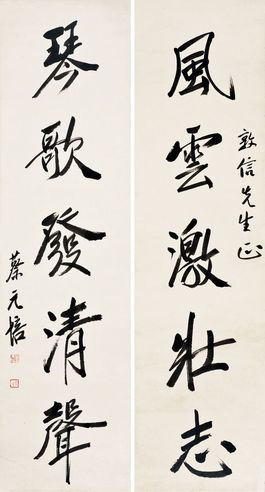 風雲激壯志
敦信先生正
琴歌發清聲
蔡元培